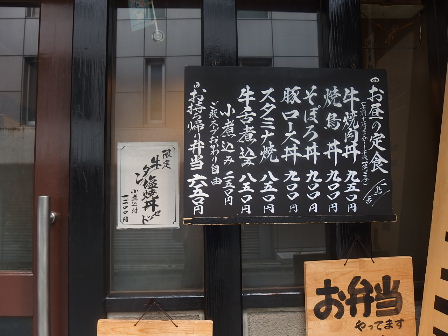 お昼の定食
牛焼肉丼 九五〇円
焼鳥丼 九〇〇円
そぼろ丼 九〇〇円
豚ロース丼 九〇〇円
スタミナ焼 八五〇円
牛舌煮込み 八五〇円
小煮込み 二五〇円
ご飯・スープおかわり自由
お持ち帰り弁当 六五〇円
限定
牛タン塩焼丼セット
小煮込付
一二〇〇円
お弁当
やってます